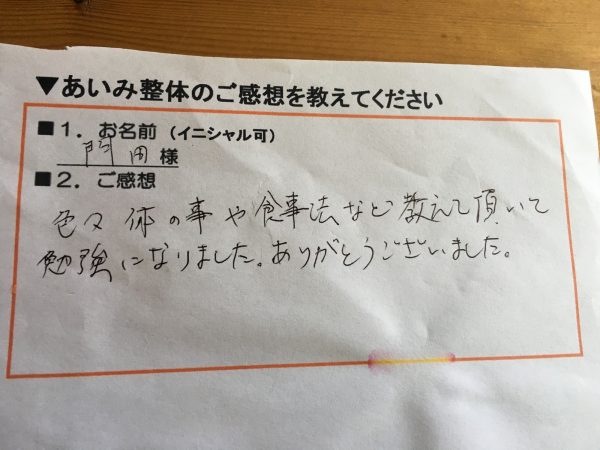 ▼あいみ整体のご感想を教えてください
■１．お名前（イニシャル可）
門田 様
■２．ご感想
色々 体の事や食事法など教えて頂いて
勉強になりました。ありがとうございました。